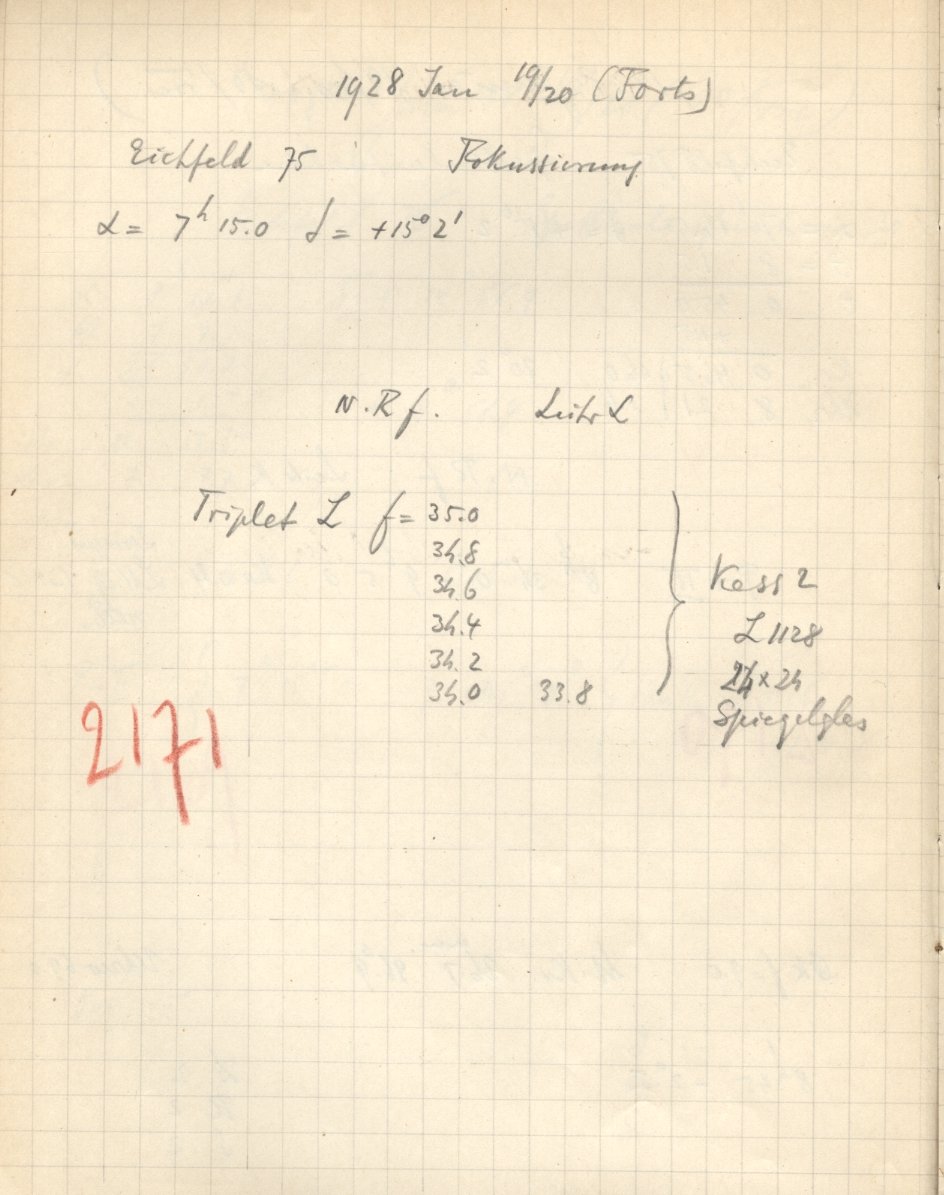 1928 Jan 19/20 (Forts)
Eichfeld 75 Fokussierung
α = 7h 15.0 δ = +15° 2'
N.R f. Leitr L
Triplet L f = 35.0
34.8
34.6
34.4
34.2
34.0 33.8
Kass 2
L 1128
24 × 24
Spiegelglas
2171